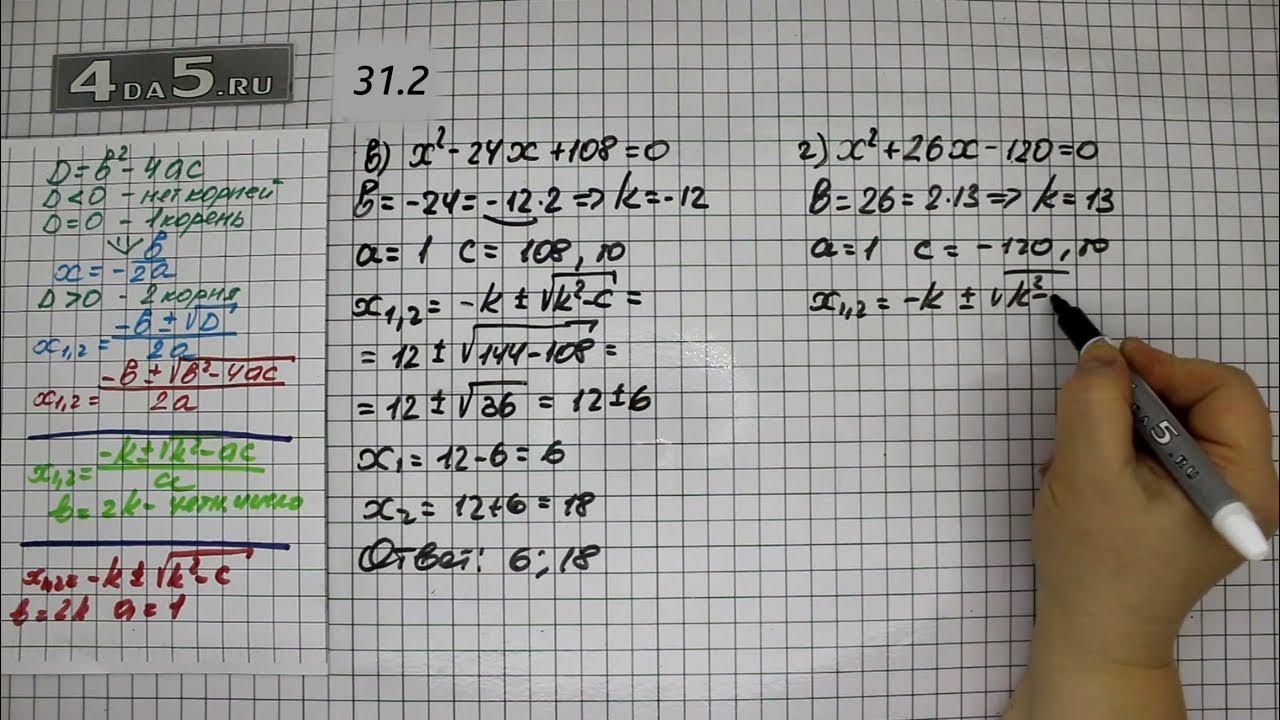 4DA5.RU
31.2
D = b² - 4ac
D < 0 - нет корней
D = 0 - 1 корень
x = - b/2a
D > 0 - 2 корня
x₁,₂ = (-b ± √D)/2a
x₁,₂ = (-b ± √(b² - 4ac))/2a
x₁,₂ = (-k ± √(k² - ac))/a
b = 2k - четн. число
x₁,₂ = -k ± √(k² - c)
b = 2k a = 1
в) x² - 24x + 108 = 0
b = -24 = -12 · 2 => k = -12
a = 1 c = 108, то
x₁,₂ = -k ± √(k² - c) =
= 12 ± √(144 - 108) =
= 12 ± √36 = 12 ± 6
x₁ = 12 - 6 = 6
x₂ = 12 + 6 = 18
Ответ: 6; 18
г) x² + 26x - 120 = 0
b = 26 = 2 · 13 => k = 13
a = 1 c = -120, то
x₁,₂ = -k ± √k² -
DA5.RU